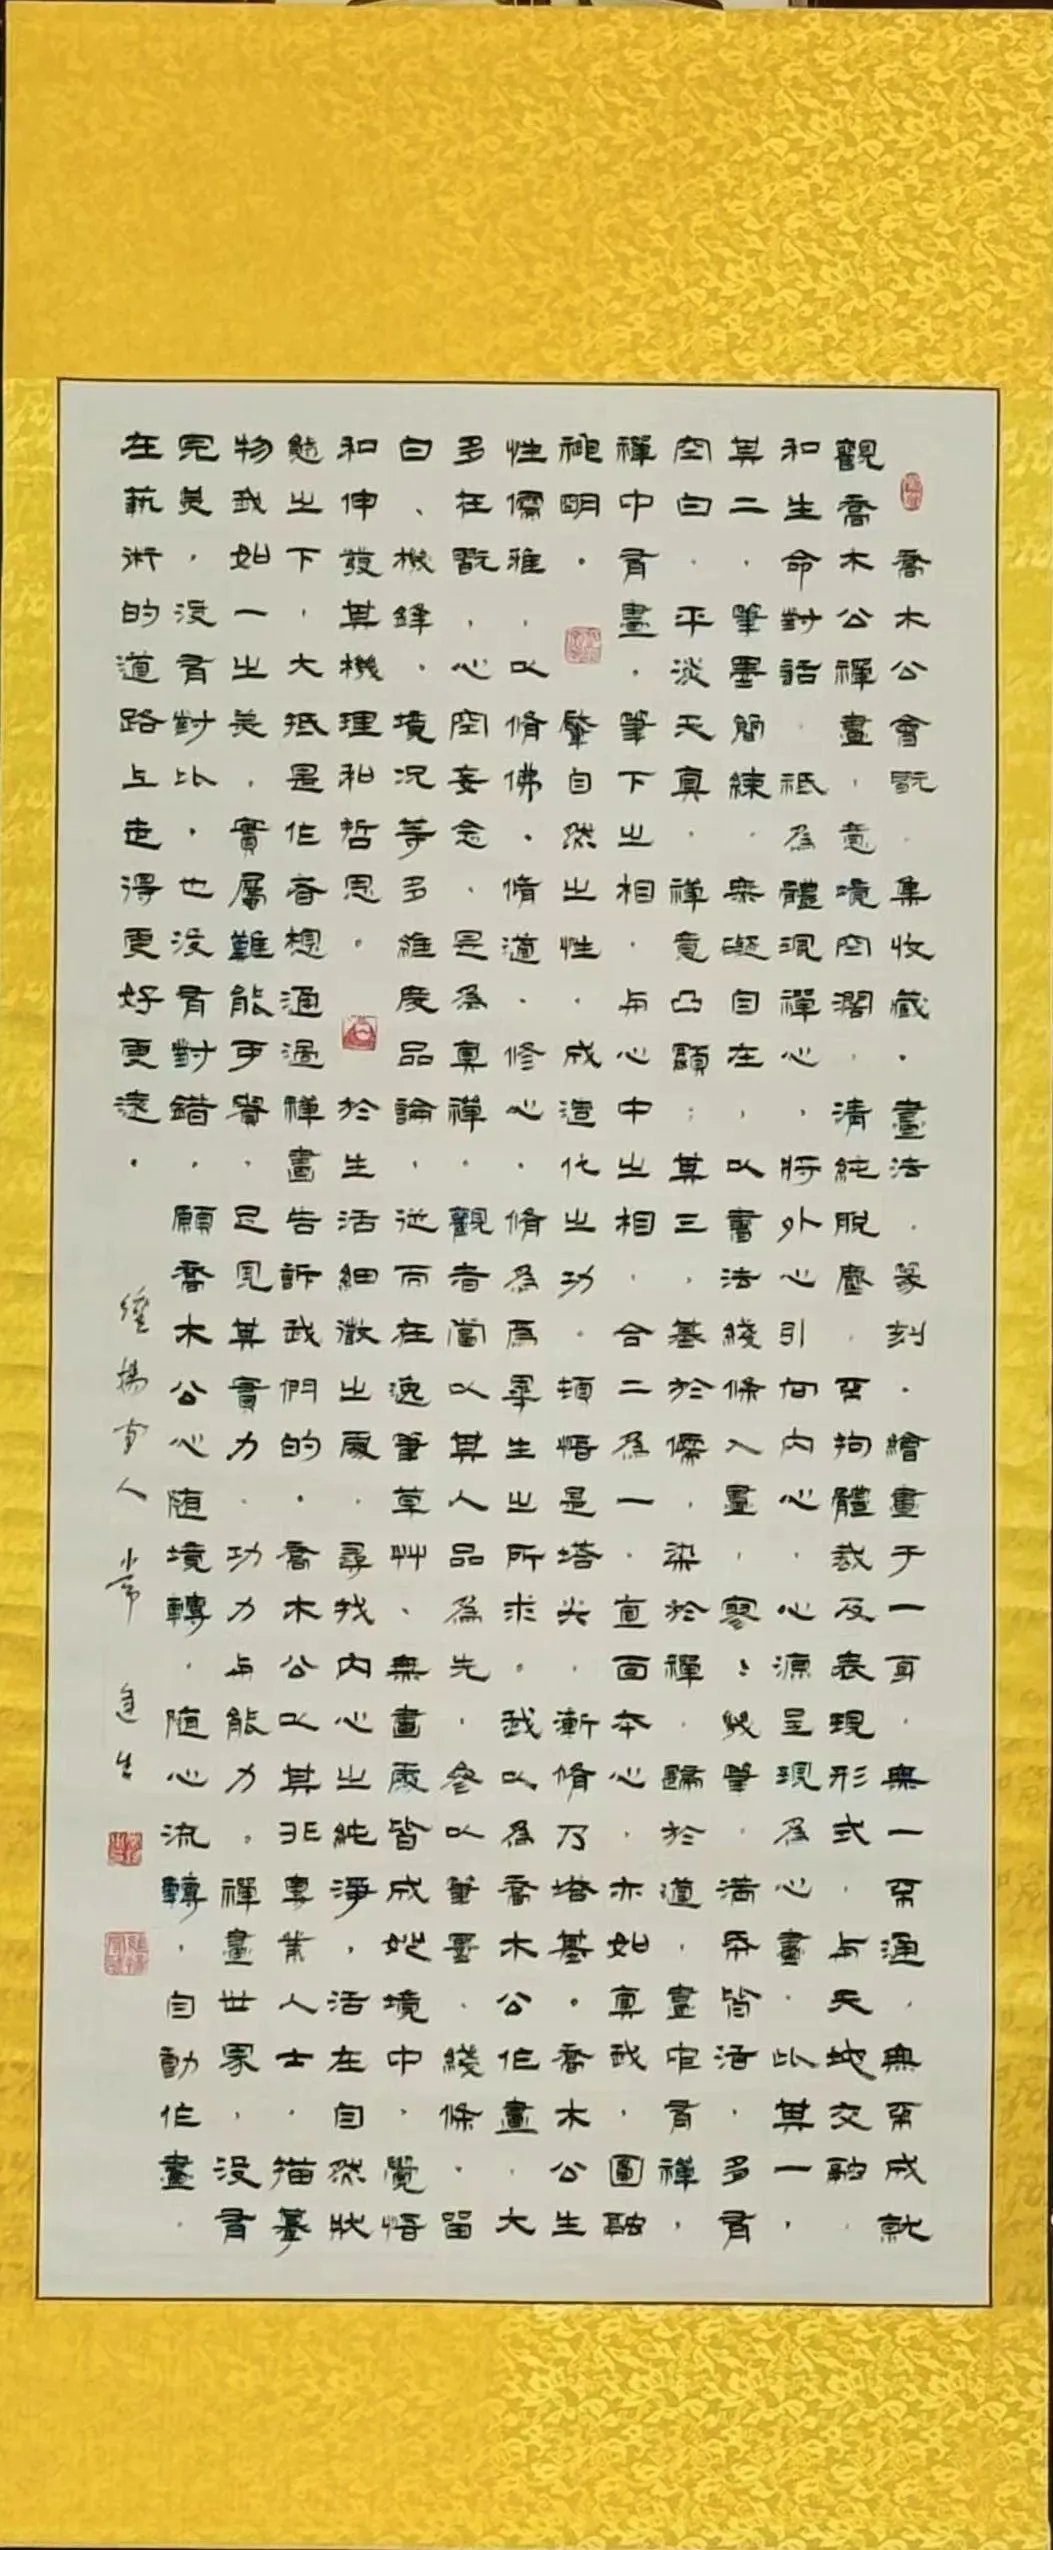 喬木公會翫．集收藏．畫法．篆刻．繪畫于一耳．無一不通．無不成就
觀喬木公禪畫，意境空濶．清純脫塵．不拘體裁及表現形式．与天地交融．
和生命對話．祇為體現禪心．將外心引向内心．心源呈現為心畫．此其一，
其二．筆墨簡練．無礙自在，以書法綫條入畫，寥寥幾筆．滿帋皆活，多有
空白．平淡天真．禪意凸顯；其三，基於儒．染於禪．歸於道，畫中有禪，
禪中有畫．筆下之相．与心中之相．合二為一．直面本心．亦如真我，圓融
禠明．肇自然之性．成造化之功．頓悟是塔尖．漸脩乃塔基．喬木公生
性儒雅．以脩佛．脩道．修心．脩為為畢生之所求．我以為喬木公作畫．大
多在翫，心空妄念．是為真禪．觀者當以其人品為先．參以筆墨．綫條．留
白、機鋒．境況等多維度品論．從而在逸筆草艸、無畫處皆成妙境中，覺悟
和伸發其機理和哲思。於生活細微之處．尋找内心之純淨，活在自然狀
態之下，大抵是作者想通過禪畫告訴我們的．喬木公以其非專業人士．描摹
物我如一之美，實屬難能可貴．足見其實力．功力与能力．禪畫世界，没有
完美，没有對比，也没有對錯．願喬木公心随境轉．随心流轉，自動作畫．
在藝術的道路上走得更好更遠．